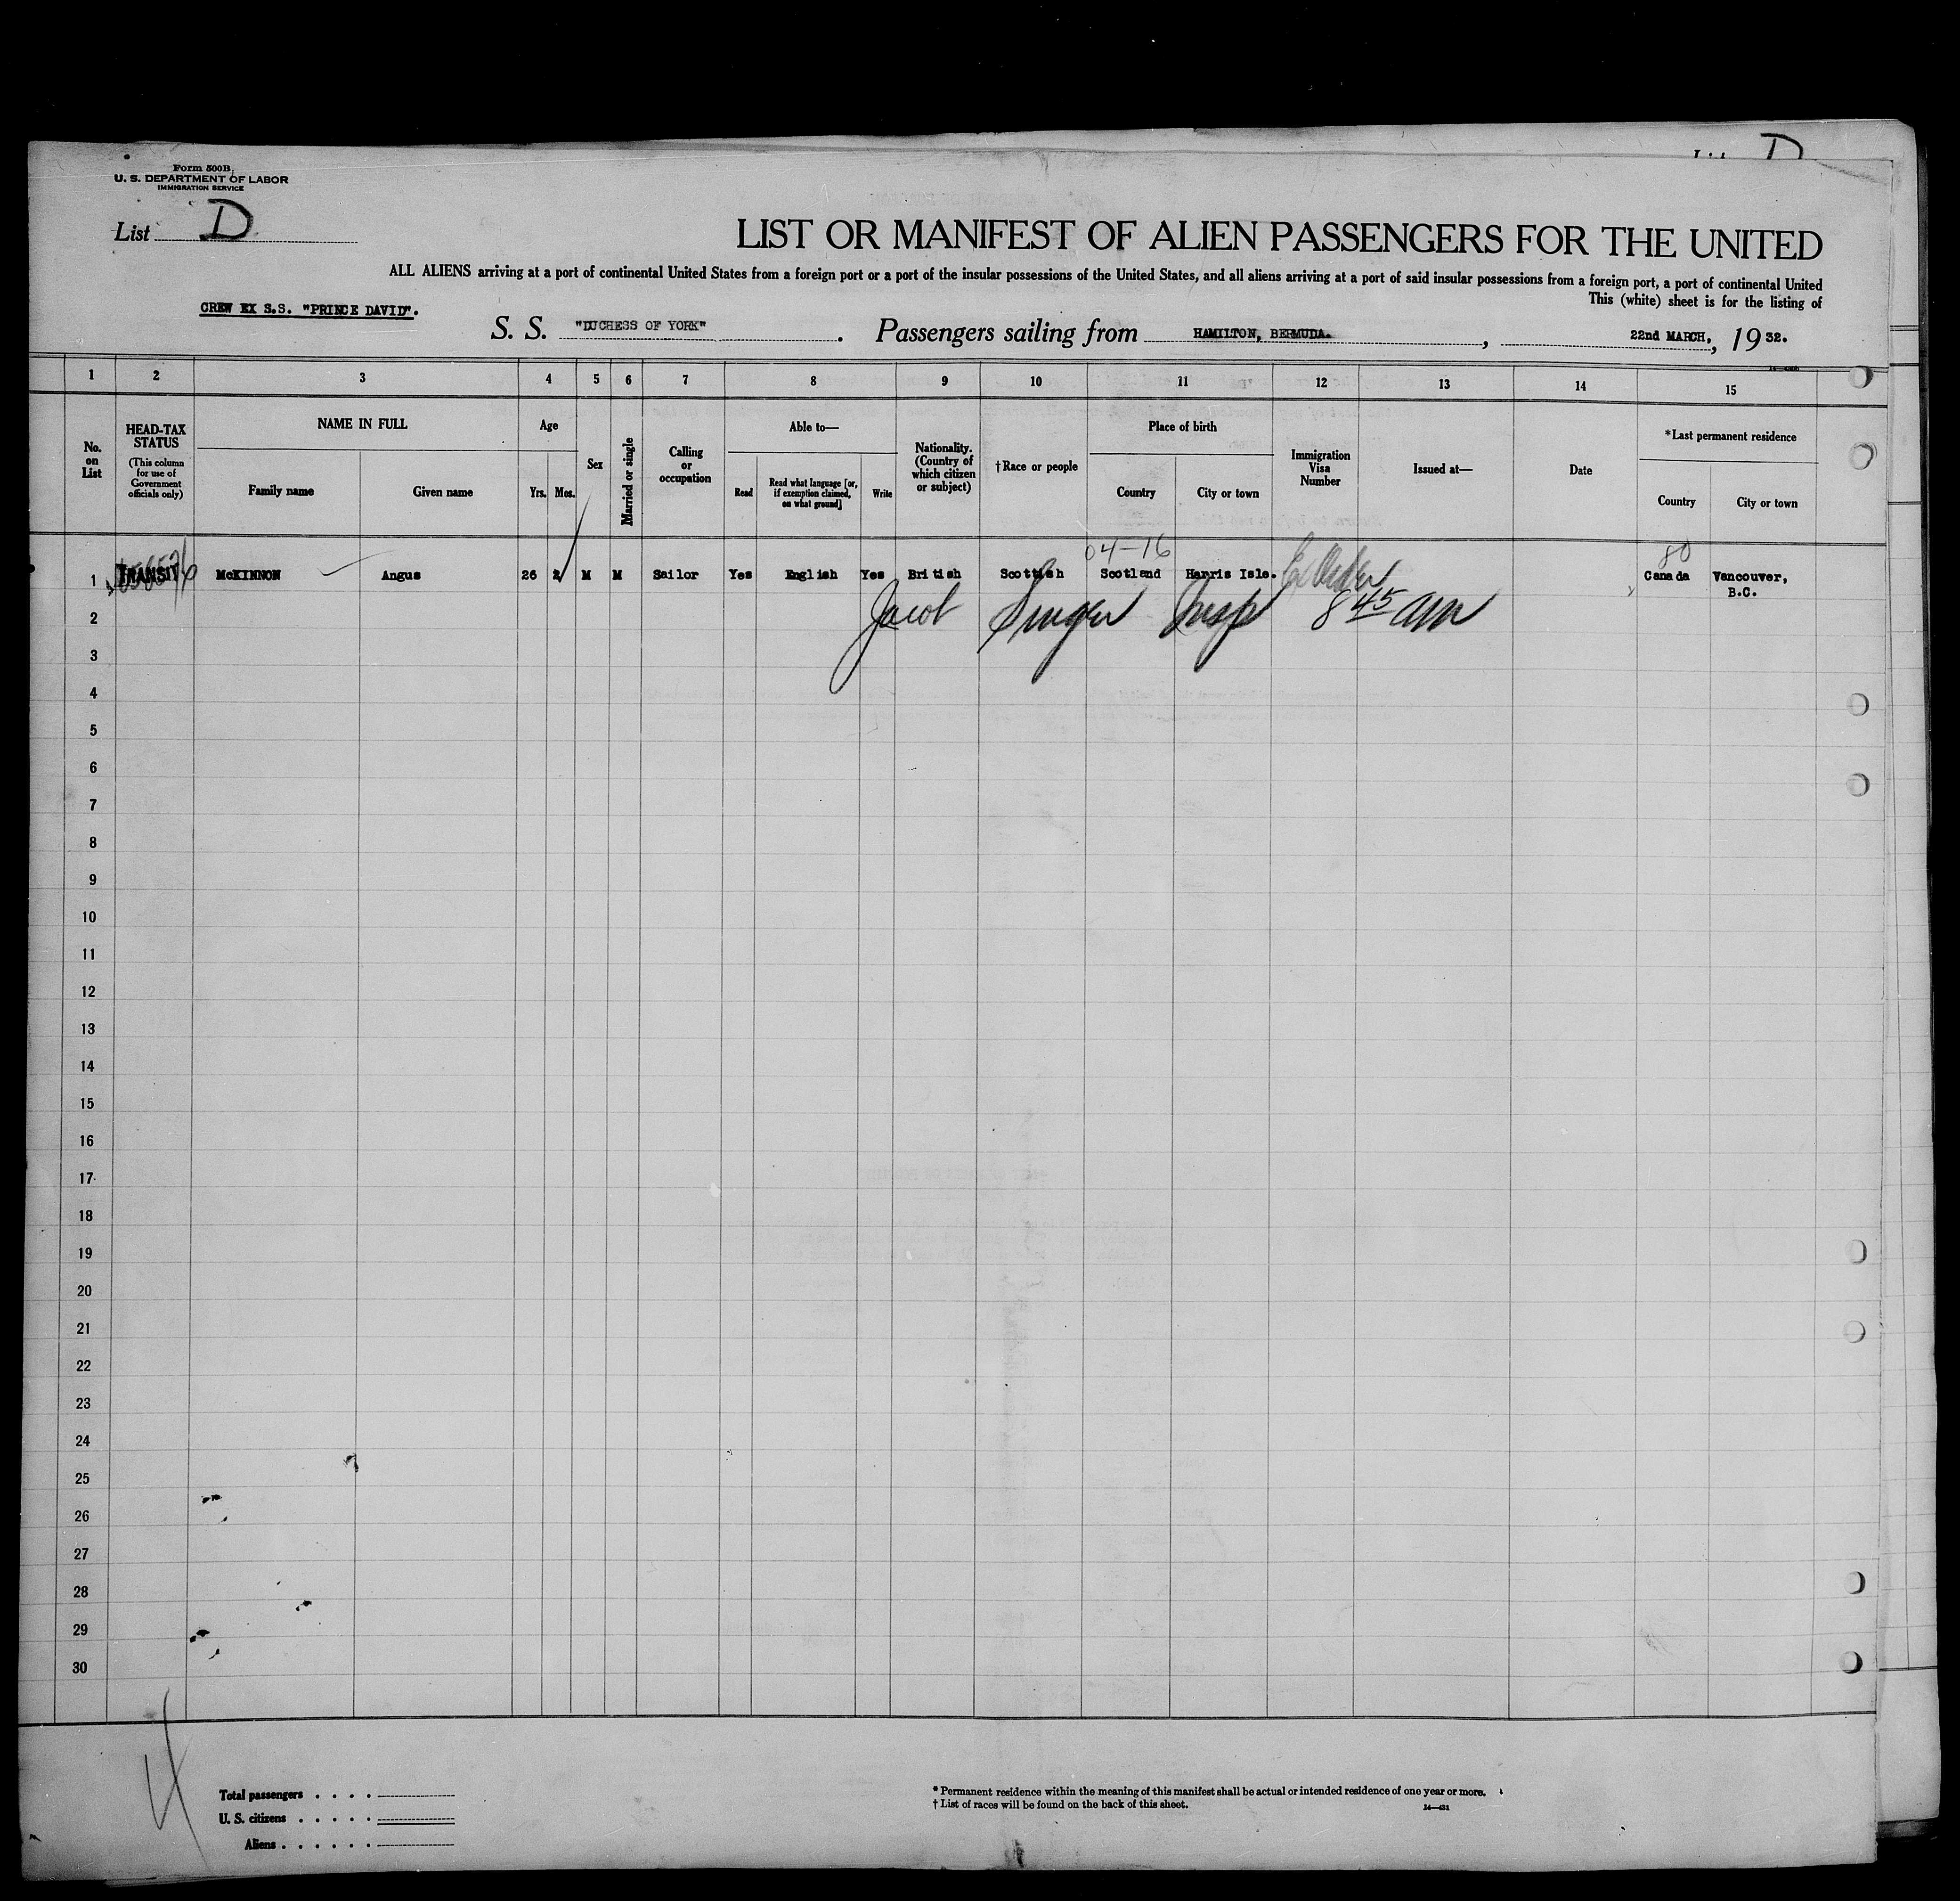 Form 500B
U. S. DEPARTMENT OF LABOR
IMMIGRATION SERVICE
D
List D
LIST OR MANIFEST OF ALIEN PASSENGERS FOR THE UNITED
ALL ALIENS arriving at a port of continental United States from a foreign port or a port of the insular possessions of the United States, and all aliens arriving at a port of said insular possessions from a foreign port, a port of continental United
This (white) sheet is for the listing of
CREW EX S.S. "PRINCE DAVID".
S. S. "DUCHESS OF YORK". Passengers sailing from HAMILTON, BERMUDA., 22nd MARCH, 1932.
1 2 3 4 5 6 7 8 9 10 11 12 13 14 15
No. on List
HEAD-TAX STATUS
(This column for use of Government officials only)
NAME IN FULL
Family name Given name
Age
Yrs. Mos.
Sex
Married or single
Calling or occupation
Able to—
Read
Read what language [or, if exemption claimed, on what ground]
Write
Nationality. (Country of which citizen or subject)
†Race or people
Place of birth
Country City or town
Immigration Visa Number
Issued at—
Date
*Last permanent residence
Country City or town
04-16 80
1 TRANSIT McKINNON Angus 26 2 M M Sailor Yes English Yes British Scottish Scotland Harris Isle. Canada Vancouver,
B.C.
2 Jacob Singer Insp 8 45 am
3
4
5
6
7
8
9
10
11
12
13
14
15
16
17
18
19
20
21
22
23
24
25
26
27
28
29
30
Total passengers . . . .
U. S. citizens . . . . .
Aliens . . . . . .
* Permanent residence within the meaning of this manifest shall be actual or intended residence of one year or more.
† List of races will be found on the back of this sheet.